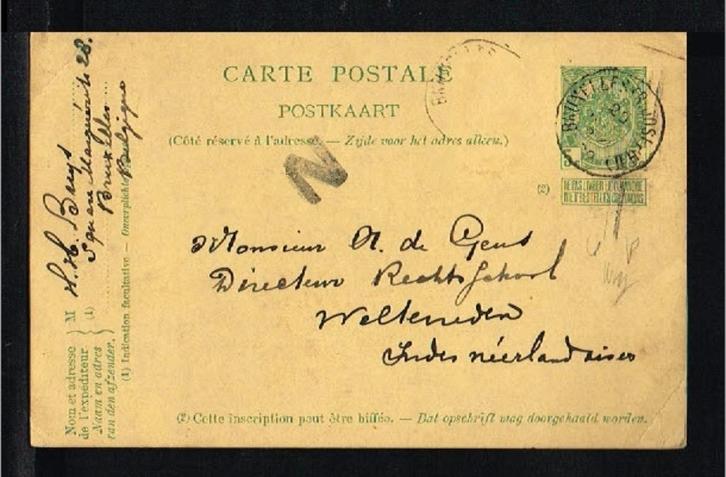 CARTE POSTALE
POSTKAART
(Côté réservé à l'adresse. — Zijde voor het adres alleen.)
BRUXELLES
N
(2)
NE PAS LIVRER LE DIMANCHE
NIET BESTELLEN OP ZONDAG
Monsieur A. de Gens
Directeur Rechtsschool
Weltevreden
Indes néerlandaises
(2) Cette inscription peut être biffée. — Dat opschrift mag doorgehaald worden.
Nom et adresse
de l'expéditeur
Naam en adres
van den afzender.
M
(1)
H. H. Buys
Square Marguerite 28.
Bruxelles
Belgique
(1) Indication facultative —